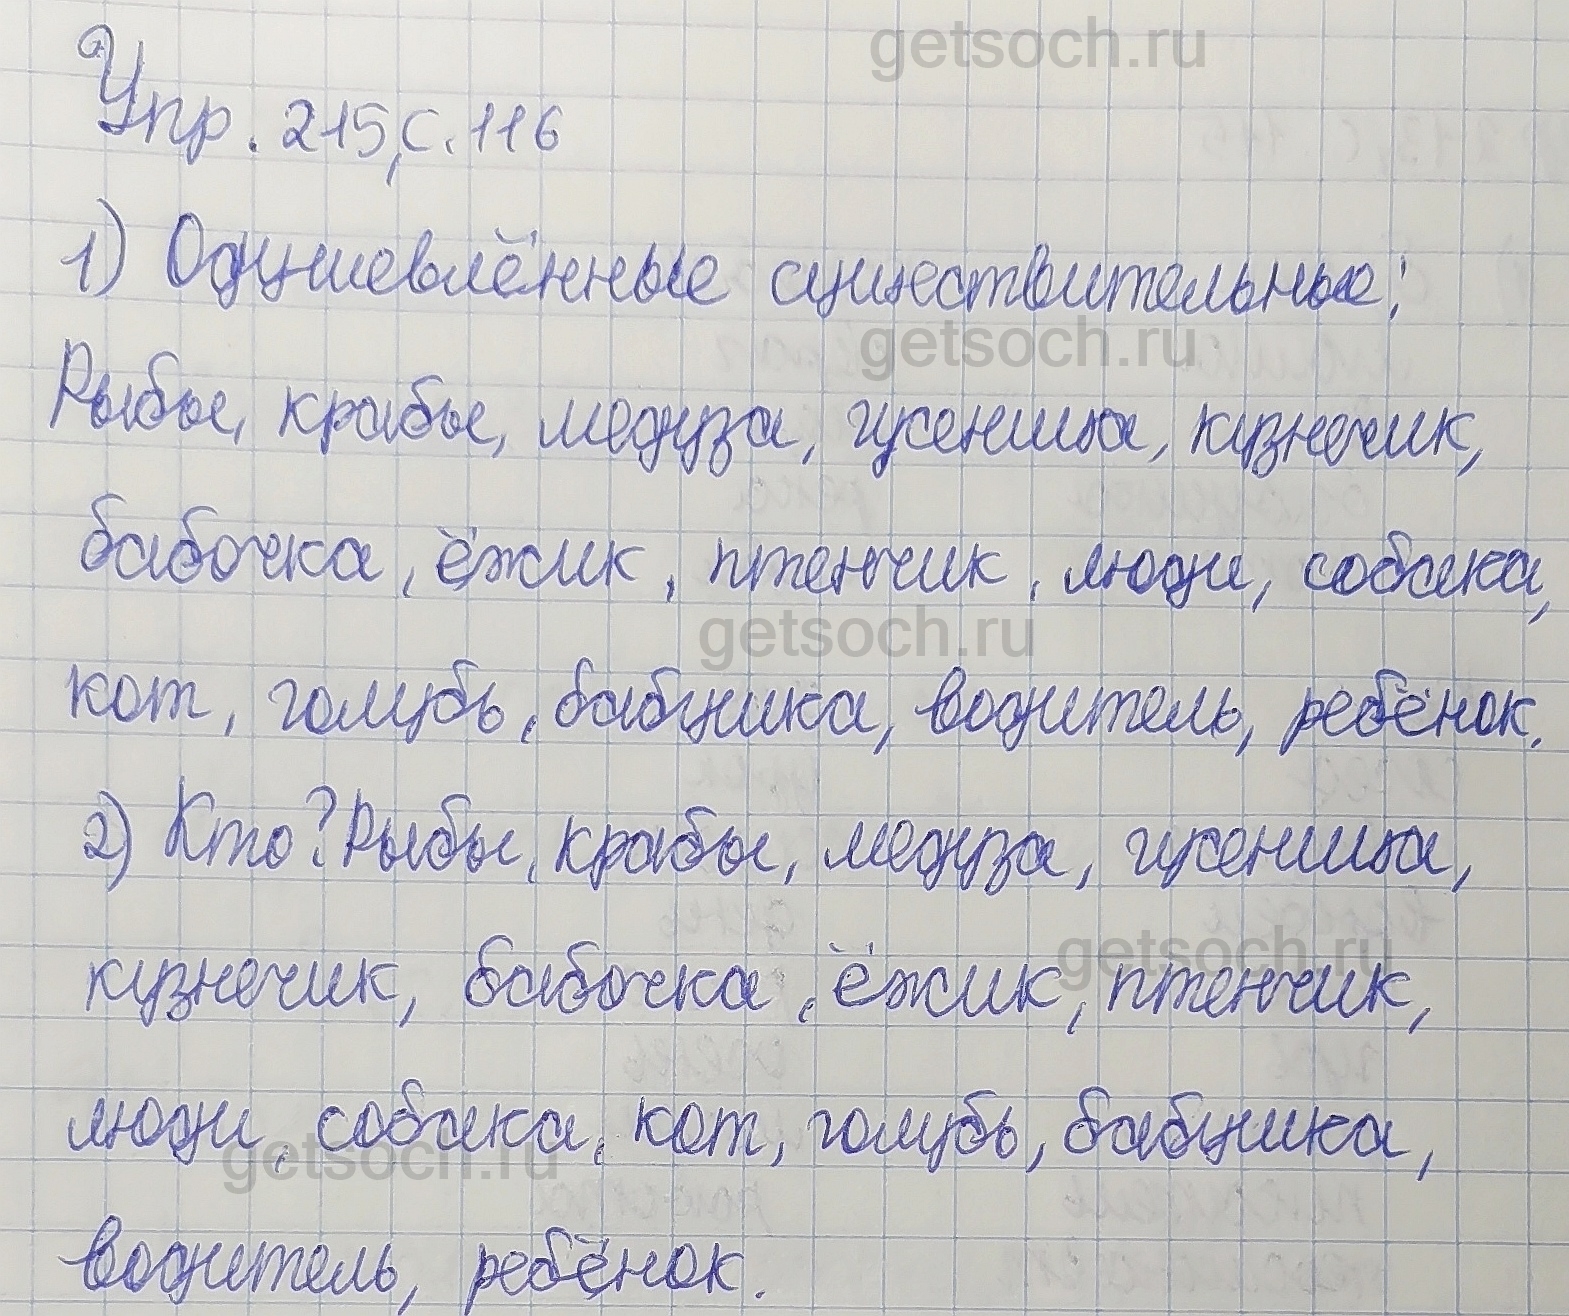 getsoch.ru
Упр. 215, с. 116
1) Одушевлённые существительные:
getsoch.ru
Рыбы, крабы, медуза, гусеница, кузнечик,
бабочка, ёжик, птенчик, люди, собака,
getsoch.ru
кот, голубь, бабушка, водитель, ребёнок.
2) Кто? Рыбы, крабы, медуза, гусеница,
getsoch.ru
кузнечик, бабочка, ёжик, птенчик,
люди, собака, кот, голубь, бабушка,
getsoch.ru
водитель, ребёнок.